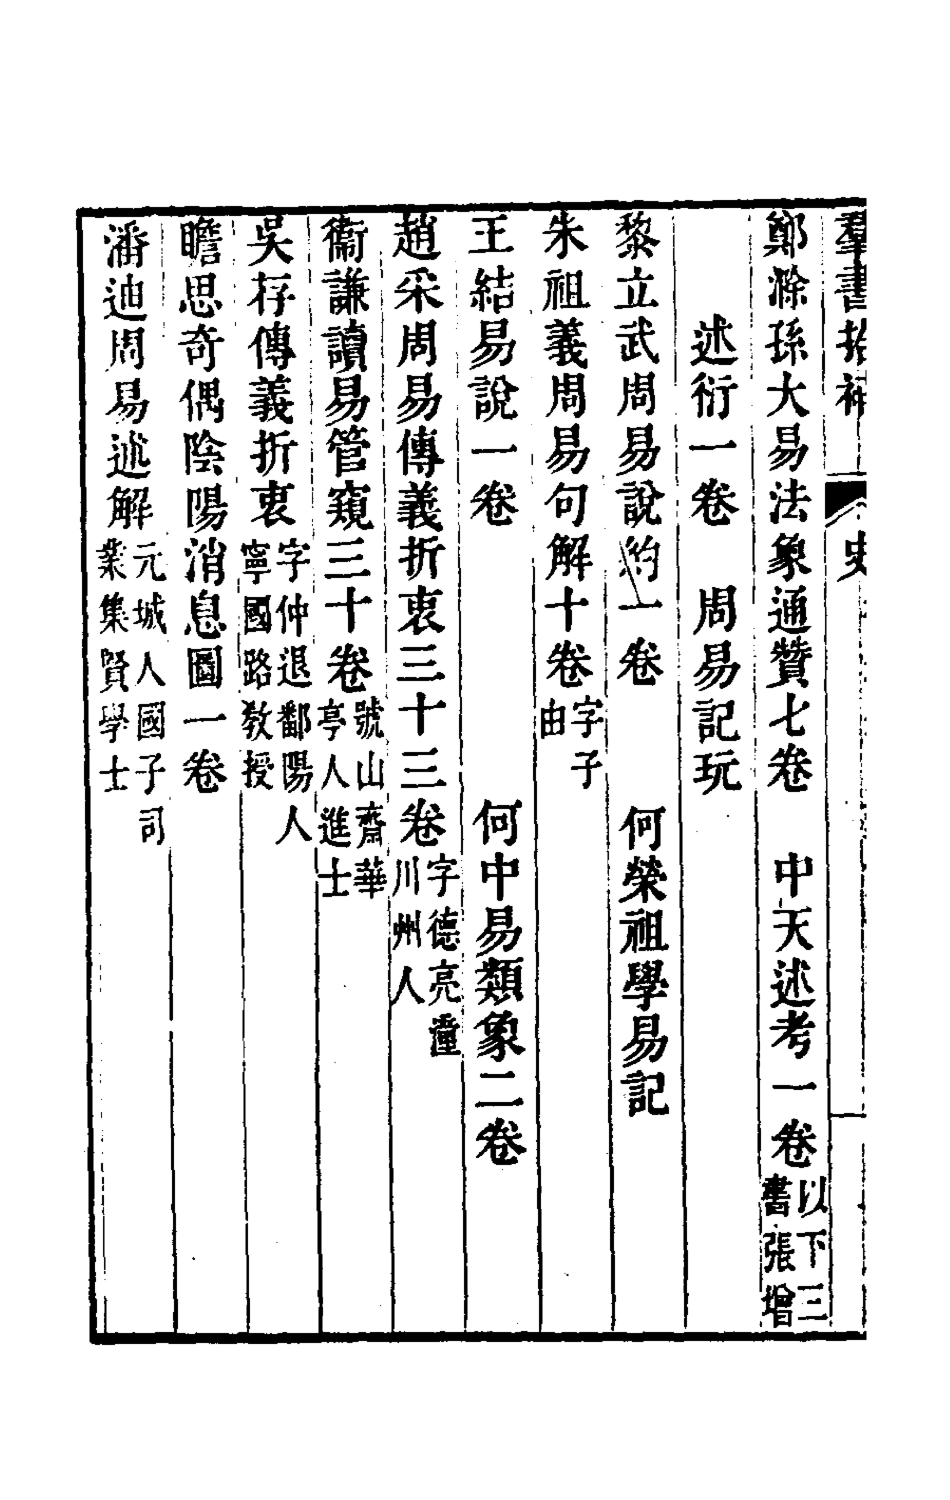 羣書拾補
鄭滁孫大易法象通贊七卷　中天述考一卷以下三書張增
述衍一卷　周易記玩
黎立武周易說約一卷　何榮祖學易記
朱祖義周易句解十卷字子由
王結易說一卷　何中易類象二卷
趙采周易傳義折衷三十三卷字德亮潼川州人
衞謙讀易管窺三十卷號山齋華亭人進士
吳存傳義折衷字仲退鄱陽人寧國路敎授
瞻思奇偶陰陽消息圖一卷
潘迪周易述解元城人國子司業集賢學士